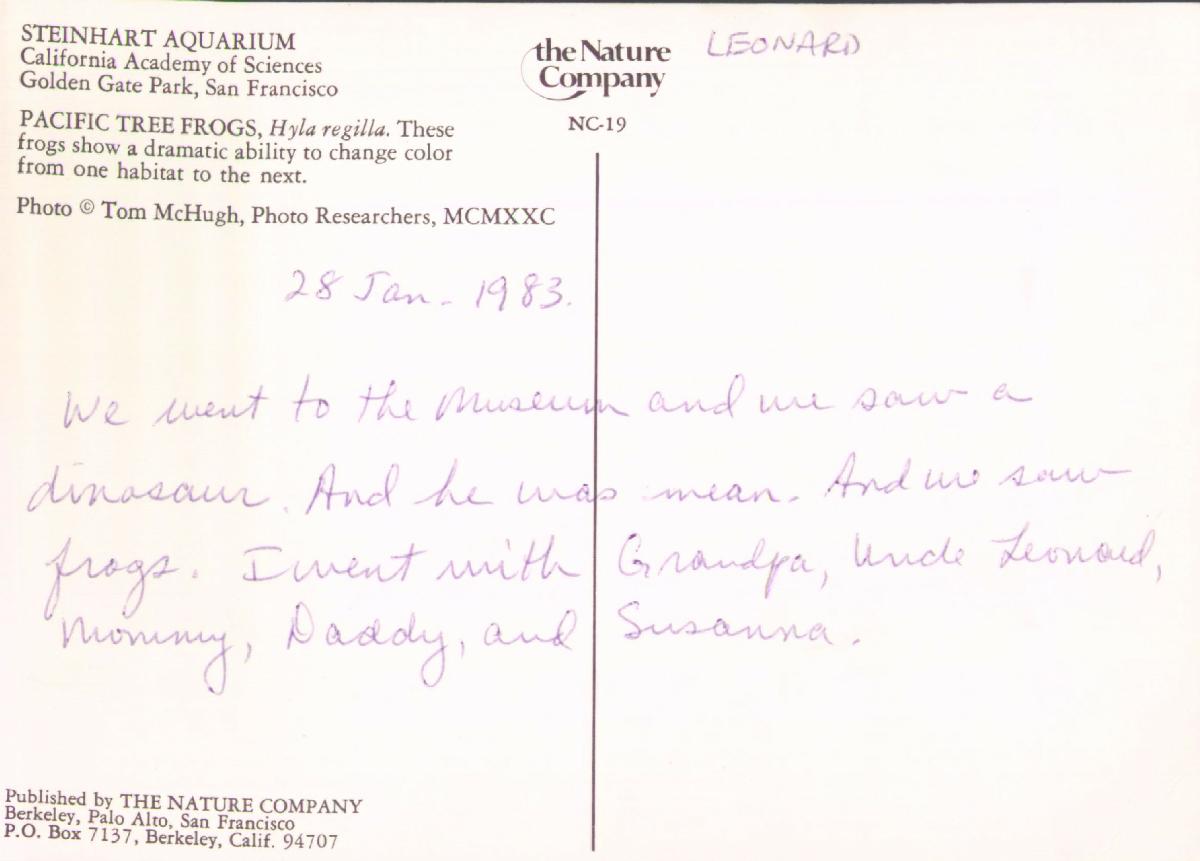 STEINHART AQUARIUM
California Academy of Sciences
Golden Gate Park, San Francisco
PACIFIC TREE FROGS, Hyla regilla. These
frogs show a dramatic ability to change color
from one habitat to the next.
Photo © Tom McHugh, Photo Researchers, MCMXXC
the Nature
Company
NC-19
LEONARD
28 Jan. 1983.
We went to the Museum and we saw a
dinosaur. And he was mean. And we saw
frogs. I went with Grandpa, Uncle Leonard,
Mommy, Daddy, and Susanna.
Published by THE NATURE COMPANY
Berkeley, Palo Alto, San Francisco
P.O. Box 7137, Berkeley, Calif. 94707